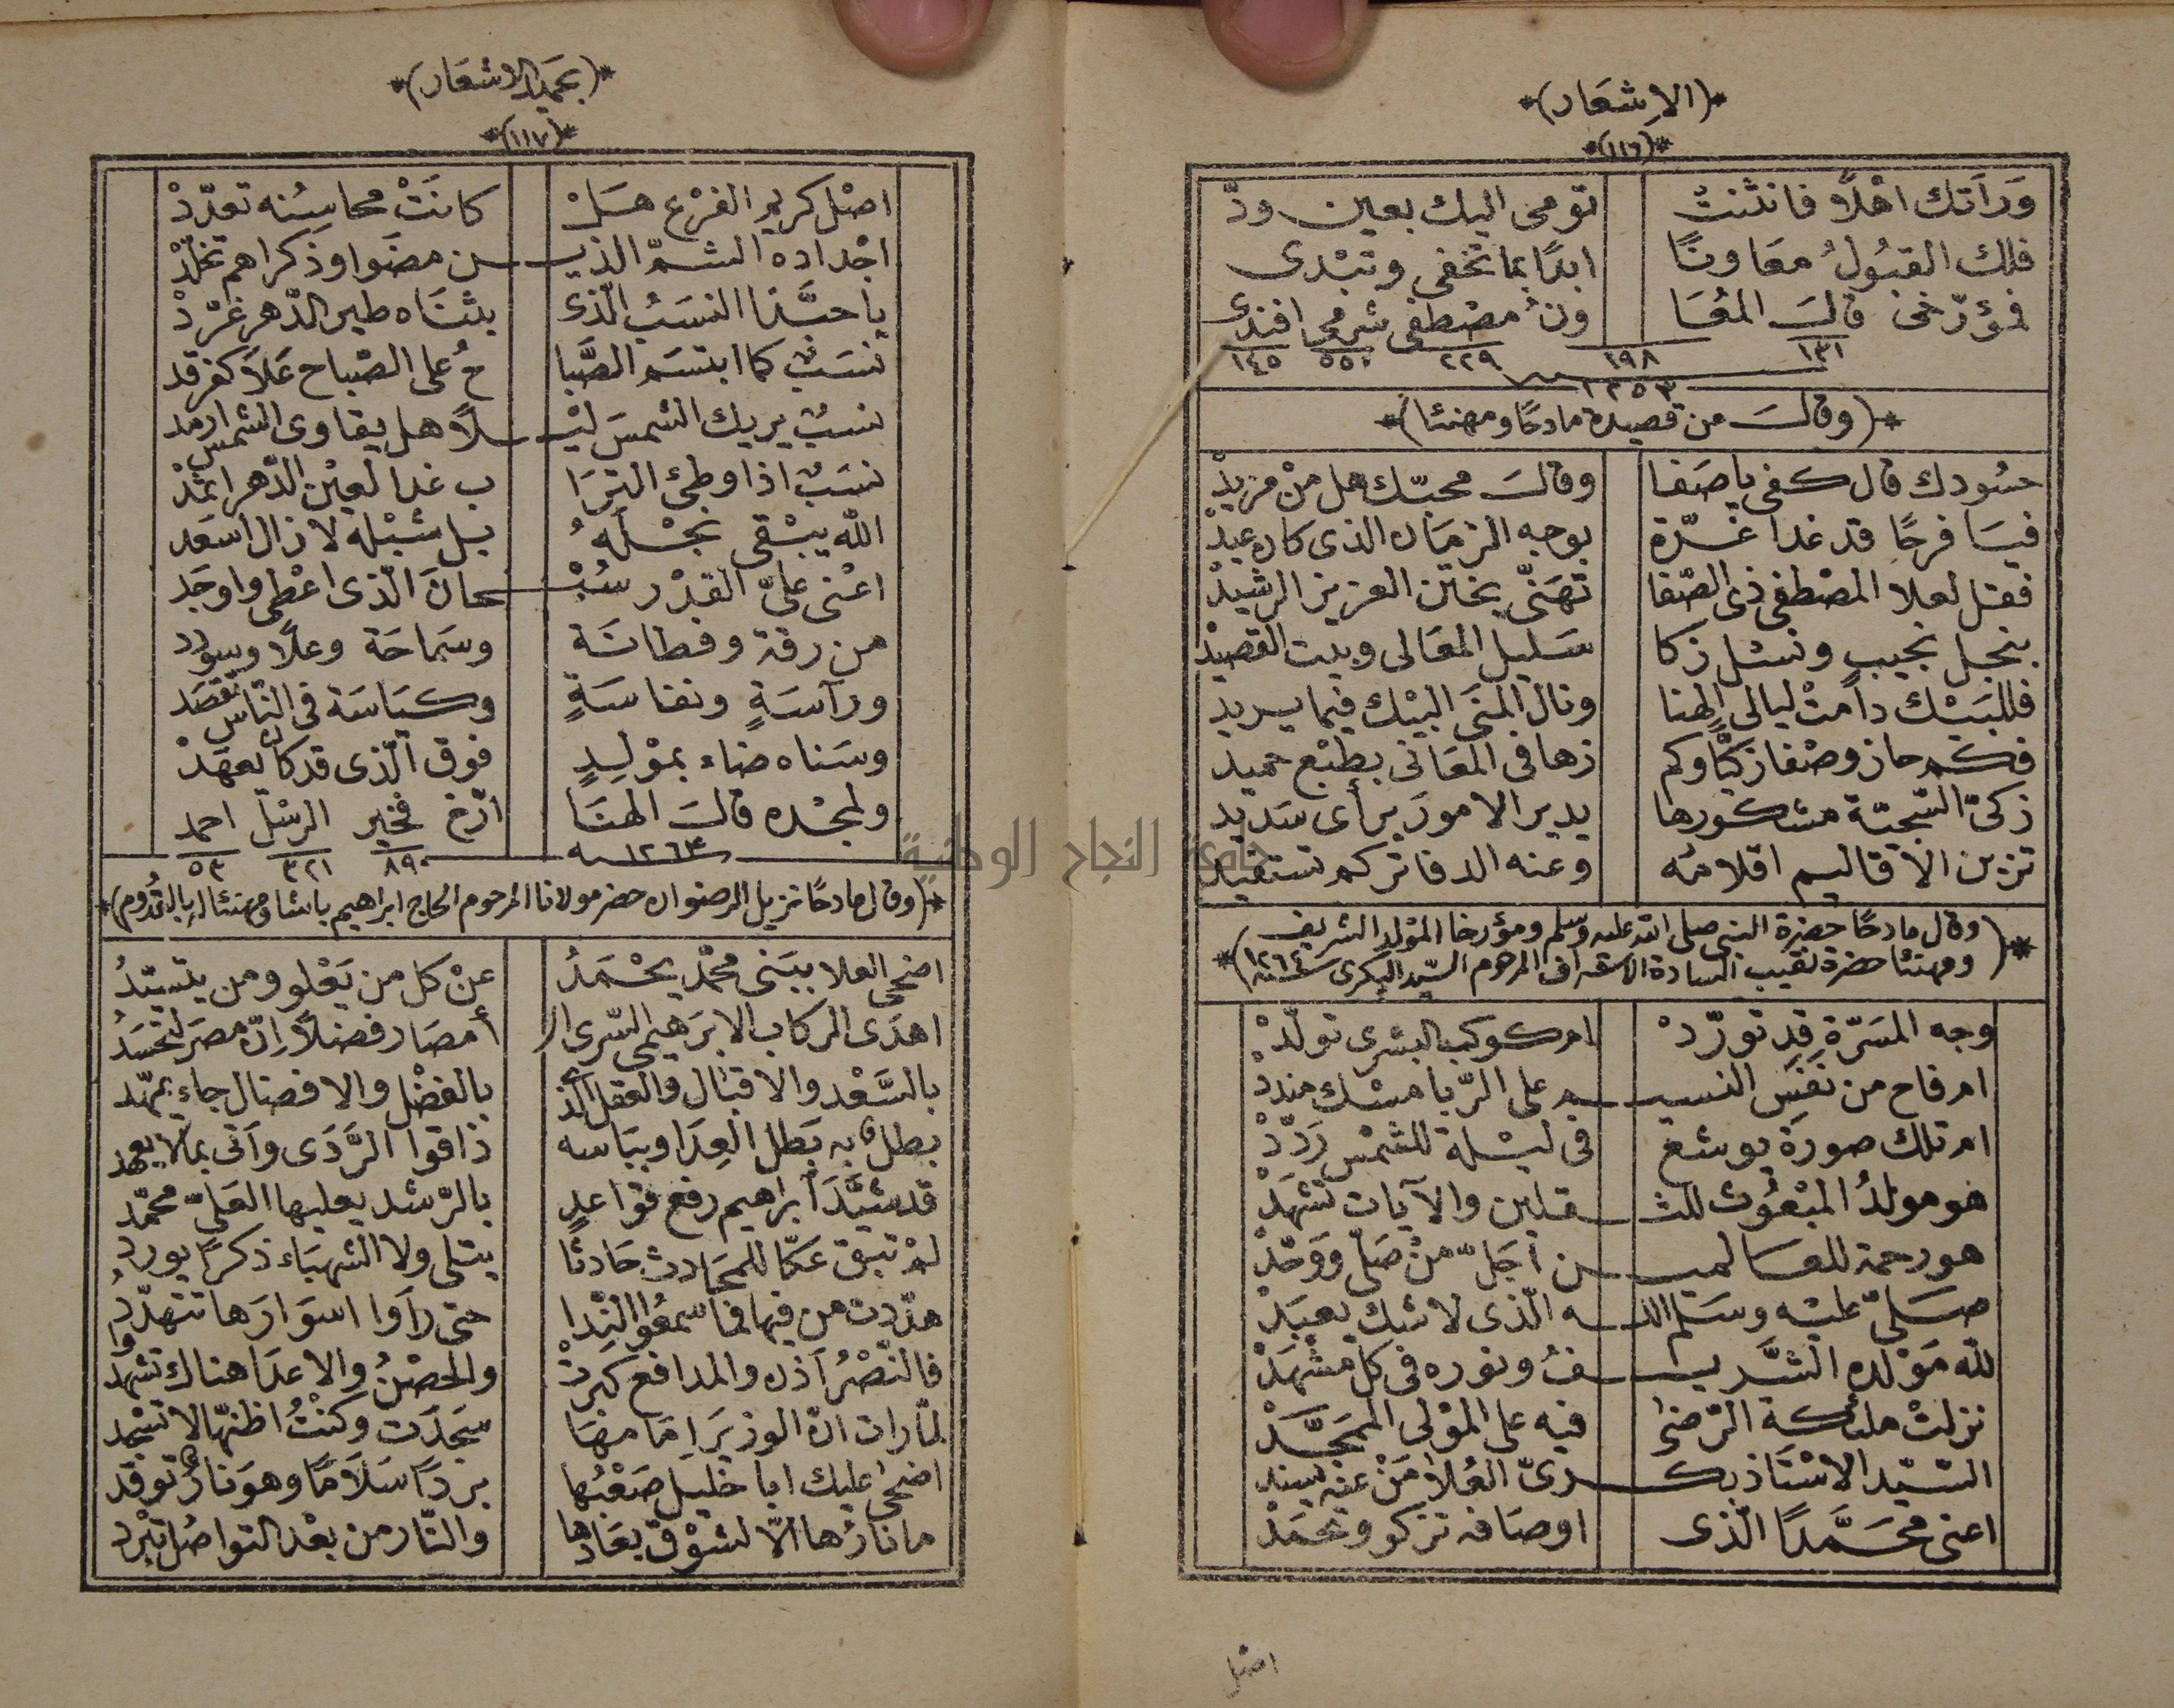 *(الاشعار)*
*(١١٦)*
وَرَآتك اهْلاً فانثنتْ تومى اليك بعين ودّ
فلك القبُولُ معَاونًا ابدًا بما تخفى وتبْدى
فمؤرّخى قالت المعَا ونُ مصْطفى شرمى افندى
١٣١ ١٩٨ ٢٢٩ ٥٥٠ ١٤٥
١٢٥٣
*(وقالَ من قصيدة مادحًا ومهنئا)*
حسُودك قال كفى ياصَفا وقالَ محبّك هل منْ مزيدْ
فيَا فرحًا قد غدا غرّة بوجه الزمَان الذى كان عيدْ
فقل لعلا المصْطفى ذى الصّفا تهَنّى بختن العزيز الرشيدْ
بنجل نجيب ونسْل زكا سَليل المعَالى وبيت القصيدْ
فللبَيْك دامتْ ليالى الهنا ونال المنَى البيْك فيما يريد
فكم حاز وصْفا زكيّا وكم زها فى المعَانى بطبْع حميد
زكىّ السّجيّة مشكورها يدير الامورَ برأى سَديد
تزين الاقاليم اقلامُه وعنه الدفاتر كم تستفيد
*(وقال مادحًا حضرة النبى صلى الله عليه وسلم ومؤرخا المَوْلد الشريف
ومهنئا حضرة نقيب السادة الاشراف المرحوم السّيد البكرى سنة ١٢٦٤)*
وجه المسَرّة قد تورّدْ ام كوكب البشرى تولّدْ
ام فاح من نَفَسِ النسيم على الرّبا مسْك مندّدْ
ام تلك صورَة يوشع فى ليْلة للشمْس رَدّدْ
هو مولدُ المبْعُوث للثقلين والآيات تشْهَدْ
هو رحمة للعالمين اجَلّ منْ صَلّى ووَحّدْ
صَلىّ عليْه وسَلم الله الّذى لاشك يعبَدْ
لله مَوْلده الشَّريفُ ونوره فى كل مشْهَدْ
نزلتْ ملئكة الرّضىٰ فيه على المَوْلى الممَجَّدْ
السّيّد الاسْتَاذ بكرىّ العُلا مَنْ عنه يسند
اعنى محَمَّدًا الّذى اوصَافه تزكو وتحمَدْ
اصْل
*(بحميد الاشعار)*
*(١١٧)*
اصْل كريم الفرْع هَلْ كانَتْ محاسِنه تعدّدْ
اجْداده الشمّ الذين مضَوا وذكراهم تخلّدْ
ياحبَّذا النسَبُ الّذى بثنَاه طير الدّهر غرّدْ
نسَبٌ كما ابتسَم الصَّباحُ على الصّباح عَلاَ كفرقد
نسبٌ يريك الشمسَ ليْلاً هل يقاوى الشمس ارمد
نسَبٌ اذا وطئ الترَاب غدا لعيْن الدّهر اثمدْ
الله يبْقى نجْلَهُ بل شبْله لازال اسْعَد
اعْنى علىّ القدْر سُبْحانَ الّذى اعْطى واوجَد
من رقة وفطانَة وسَماحَة وعلًا وسودد
ورآسَةٍ ونفاسَةٍ وكيَاسَة فى النّاس تقصَد
وسَناه ضاء بموْلِدٍ فوق الّذى قد كان يعهَدْ
ولمجْده قالَ الهنَا ارّخ فخير الرسْل احمد
١٢٦٤ ٨٩٠ ٣٢١ ٥٣
*(وقال مادحًا نزيل الرضوان حضر مولانا المرحوم الحاج ابراهيم باشا ومهنئا له بالقدُوم)*
اضحى العلا ببَنى محمّد يحْمَدُ عنْ كل من يَعْلو ومن يتسيّدُ
اهدَى الركاب الابرَهيمى السّرى الْ أمصَار فضلاً اِنّ مصرَ لتحسَدُ
بالسَّعْد والاقبَال والعقل الذى بالفضْل والافضال جاء يمهّد
بطلٌ به بَطل العِدَا وببَاسه ذاقوا الرَّدَى وآتى بما لايعهد
قد شيَّدَ ابراهيم رفع قواعدٍ بالرّشد يعليها العَلىّ محمّد
لمْ تبق عَكّا للمحَادث حَادثًا يتلى ولا الشهبَاء ذكرًا يورد
هدّدت من فيها فما سمعُوا النِدا حتى رآوا اسوَارَها تتهدّدُ
فالنّصْرُ آذن والمدافع كبرتْ والحصْنُ والاعدَا هناك تشهدوا
لمّا رات انّ الوزيرَ اِمَامهَا سَجدَت وكنْتُ اظنّها لاتسْجد
اضحى عليك ابا خليل صَعْبُها بردًا سَلاَمًا وهو نارٌ توقد
ما نارُها الّا لشوْق بعَادها والنّار من بعْد التواصُل تبْرد
جامعة النجاح الوطنية